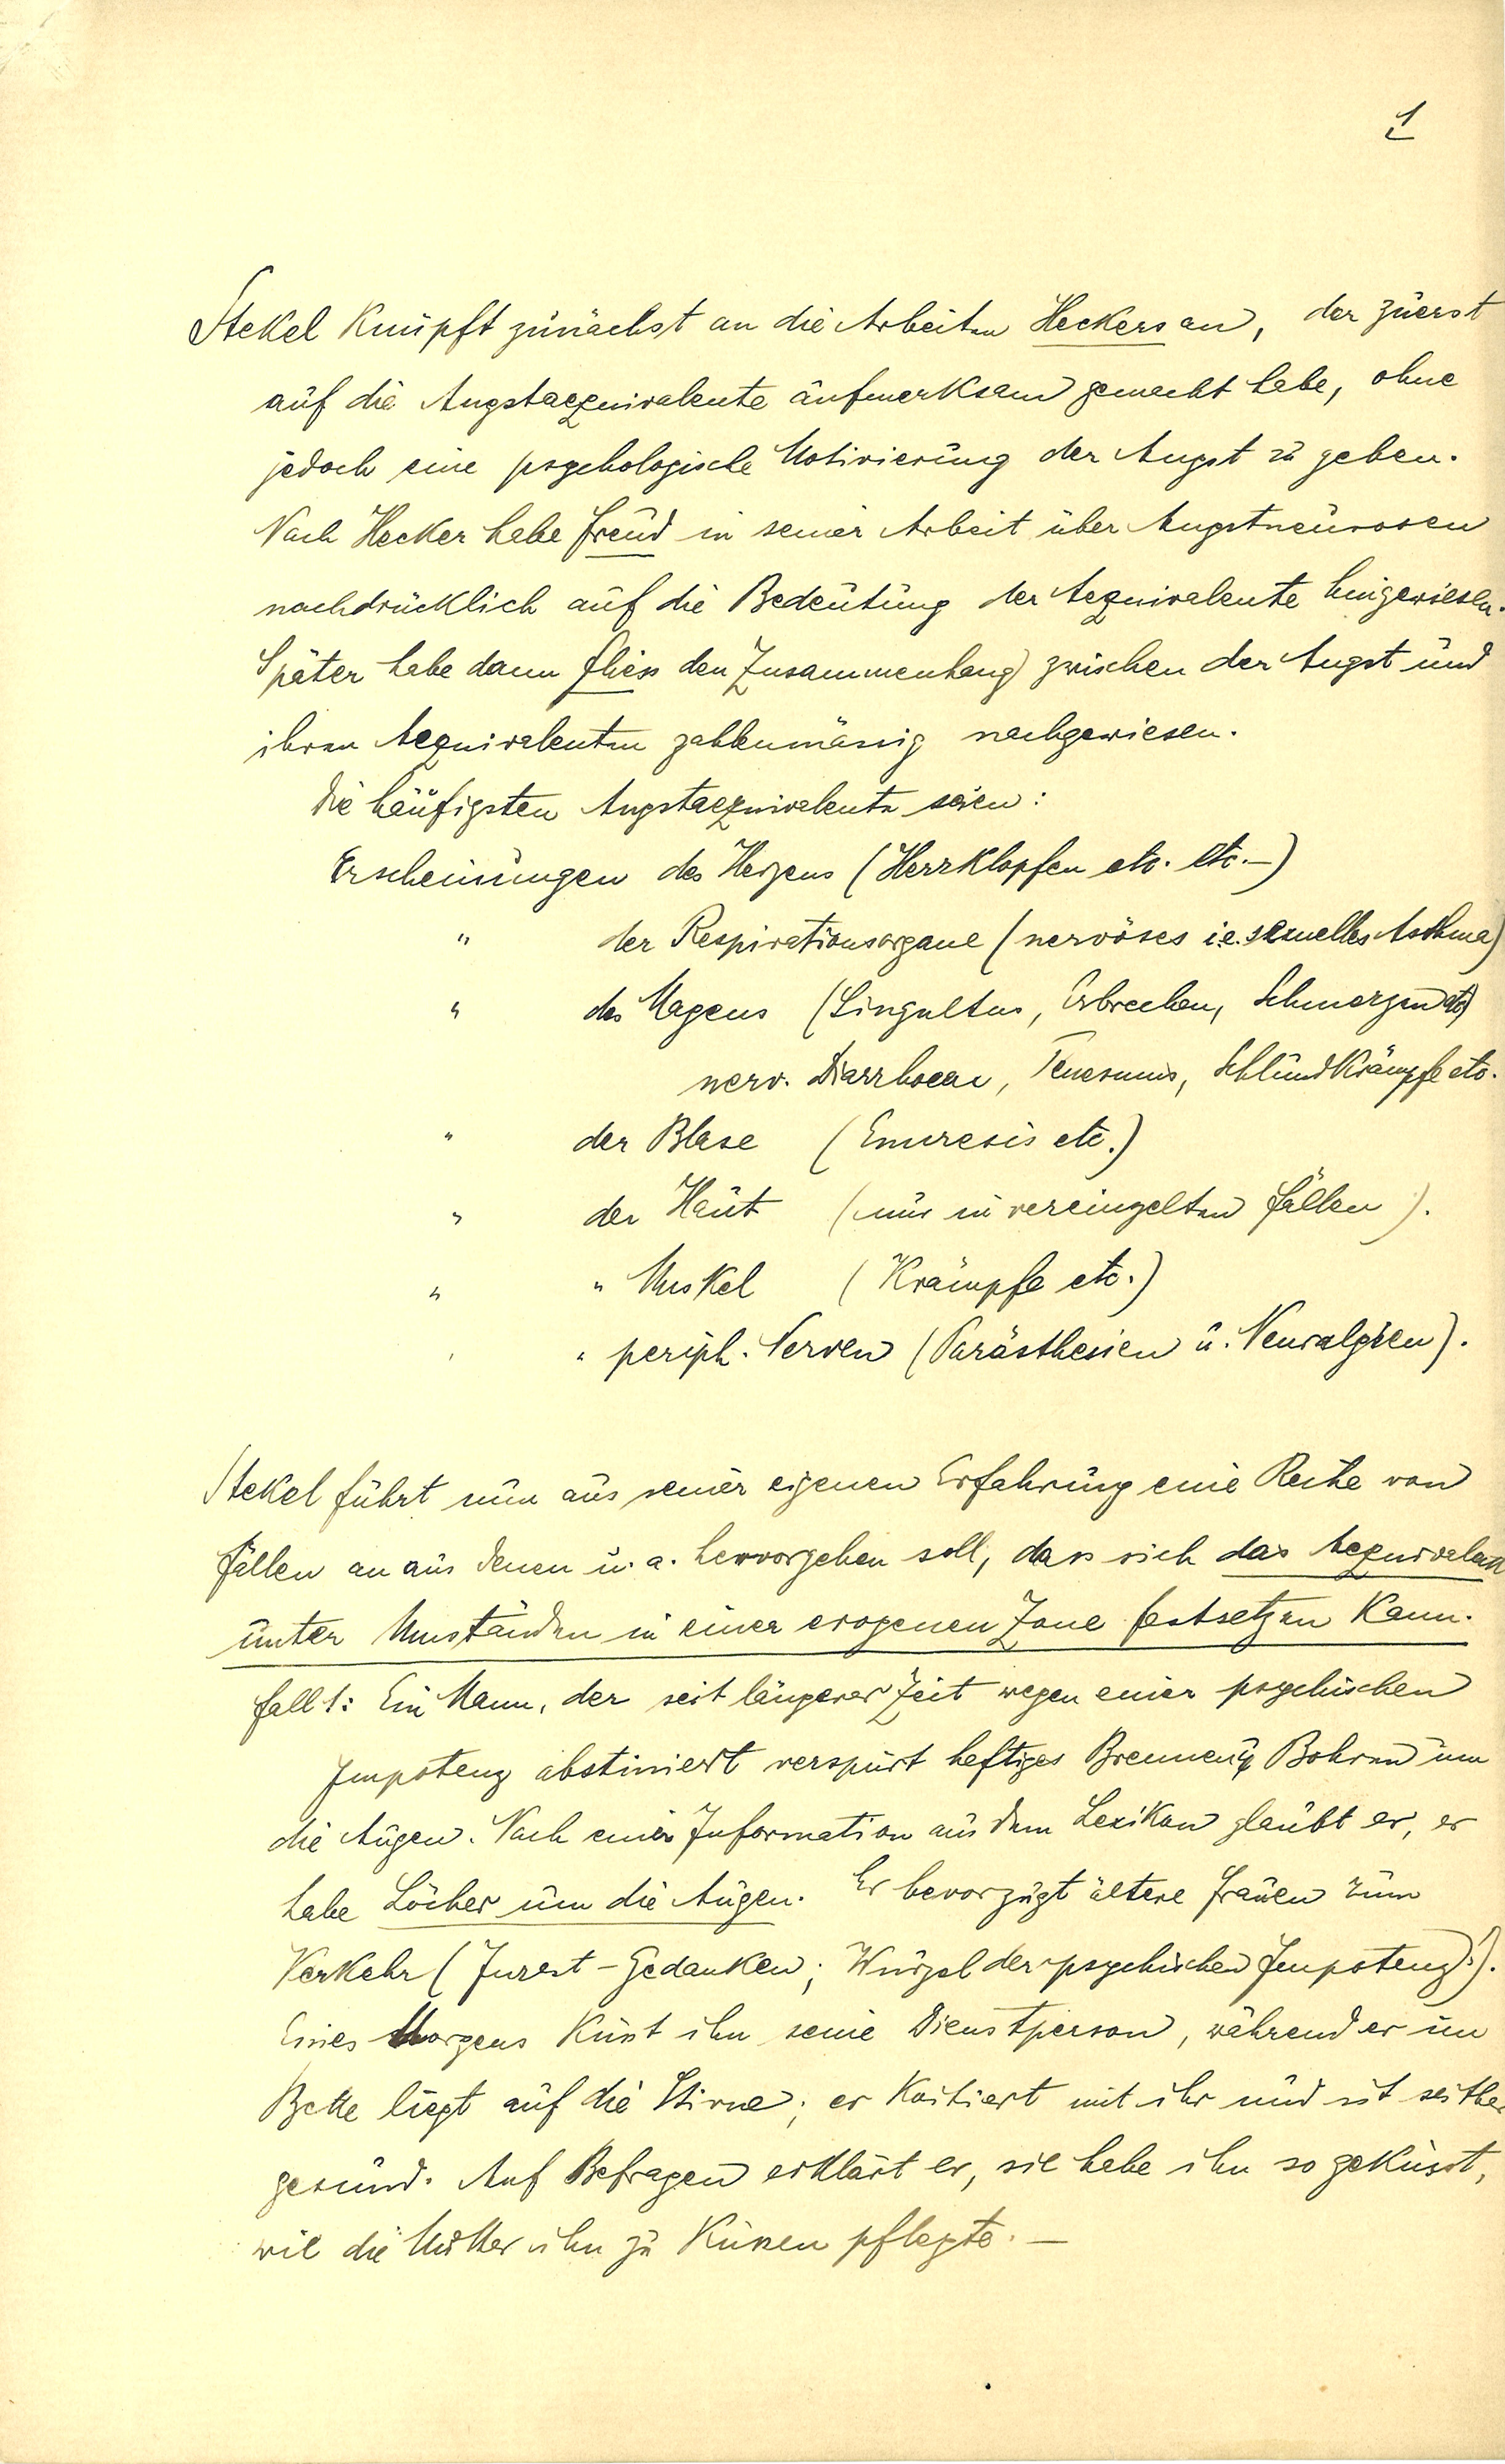 1
Stekel knüpft zunächst an die Arbeiten Heckers an, der zuerst
auf die Angstaequivalente aufmerksam gemacht habe, ohne
jedoch eine psychologische Motivierung der Angst zu geben.
Nach Hecker habe Freud in seiner Arbeit über Angstneurosen
nachdrücklich auf die Bedeutung der Aequivalente hingewiesen.
Später habe dann Fliess den Zusammenhang zwischen der Angst und
ihren Aequivalenten zahlenmässig nachgewiesen.
Die häufigsten Angstaequivalente seien:
Erscheinungen des Herzens (Herzklopfen etc. etc.—)
" der Respirationsorgane (nervöses i.e. sexuelles Asthma)
" des Magens (Singultus, Erbrechen, Schmerzen etc)
nerv. Diarrhoeen, Tenesmus, Schlundkrämpfe etc.
" der Blase (Enuresis etc.)
" der Haut (nur in vereinzelten Fällen).
" " Muskel (Krämpfe etc.)
" " periph. Nerven (Parästhesien u. Neuralgien).
Stekel führt nun aus seiner eigenen Erfahrung eine Reihe von
Fällen an aus denen u. a. hervorgehen soll, dass sich das Aequivalent
unter Umständen in einer erogenen Zone festsetzen kann.
Fall 1: Ein Mann, der seit längerer Zeit wegen einer psychischen
Impotenz abstiniert verspürt heftiges Brennen u. Bohren um
die Augen. Nach einer Information aus dem Lexikon glaubt er, er
habe Löcher um die Augen. Er bevorzugt ältere Frauen zum
Verkehr (Inzest-Gedanken; Wurzel der psychischen Impotenz!).
Eines Morgens küsst ihn seine Dienstperson, während er im
Bette liegt auf die Stirne; er koitiert mit ihr und ist seither
gesund. Auf Befragen erklärt er, sie habe ihn so geküsst,
wie die Mutter ihn zu küssen pflegte. —